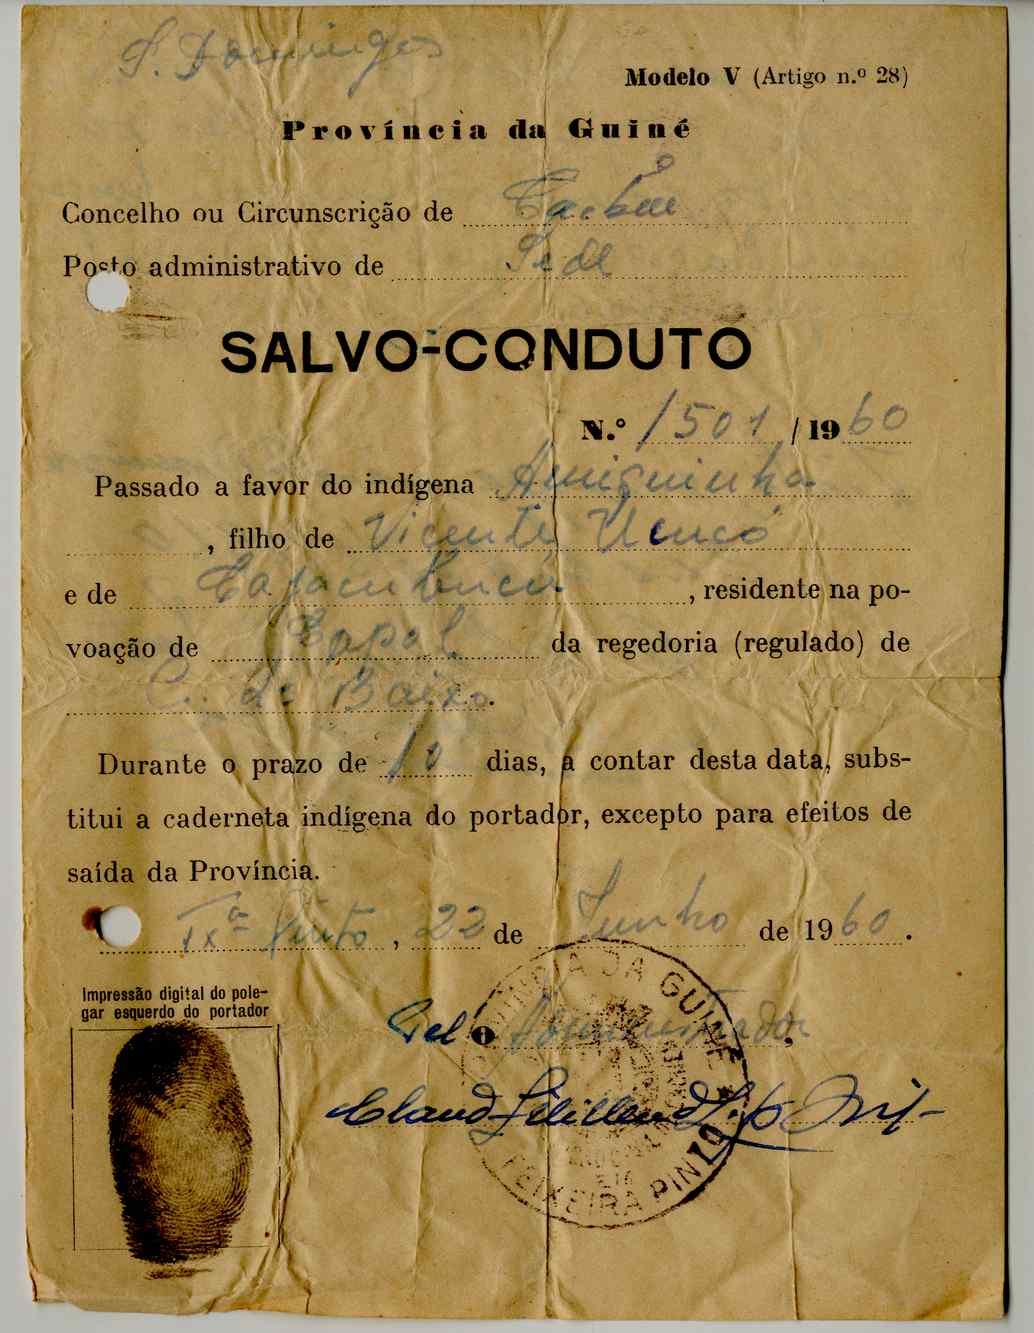 S. Domingos
Modelo V (Artigo n.º 28)
Província da Guiné
Concelho ou Circunscrição de Cacheu
Posto administrativo de Sede
SALVO-CONDUTO
N.º 1501 / 1960
Passado a favor do indígena Amiguinha
, filho de Vicente Ucucó
e de , residente na po-
voação de Capol da regedoria (regulado) de
C. de Baixo.
Durante o prazo de 10 dias, a contar desta data, subs-
titui a caderneta indígena do portador, excepto para efeitos de
saída da Província.
Txª Pinto, 22 de Junho de 1960.
Impressão digital do pole-
gar esquerdo do portador
Pel' O Administrador,
PROVINCIA DA GUINÉ
TEIXEIRA PINTO